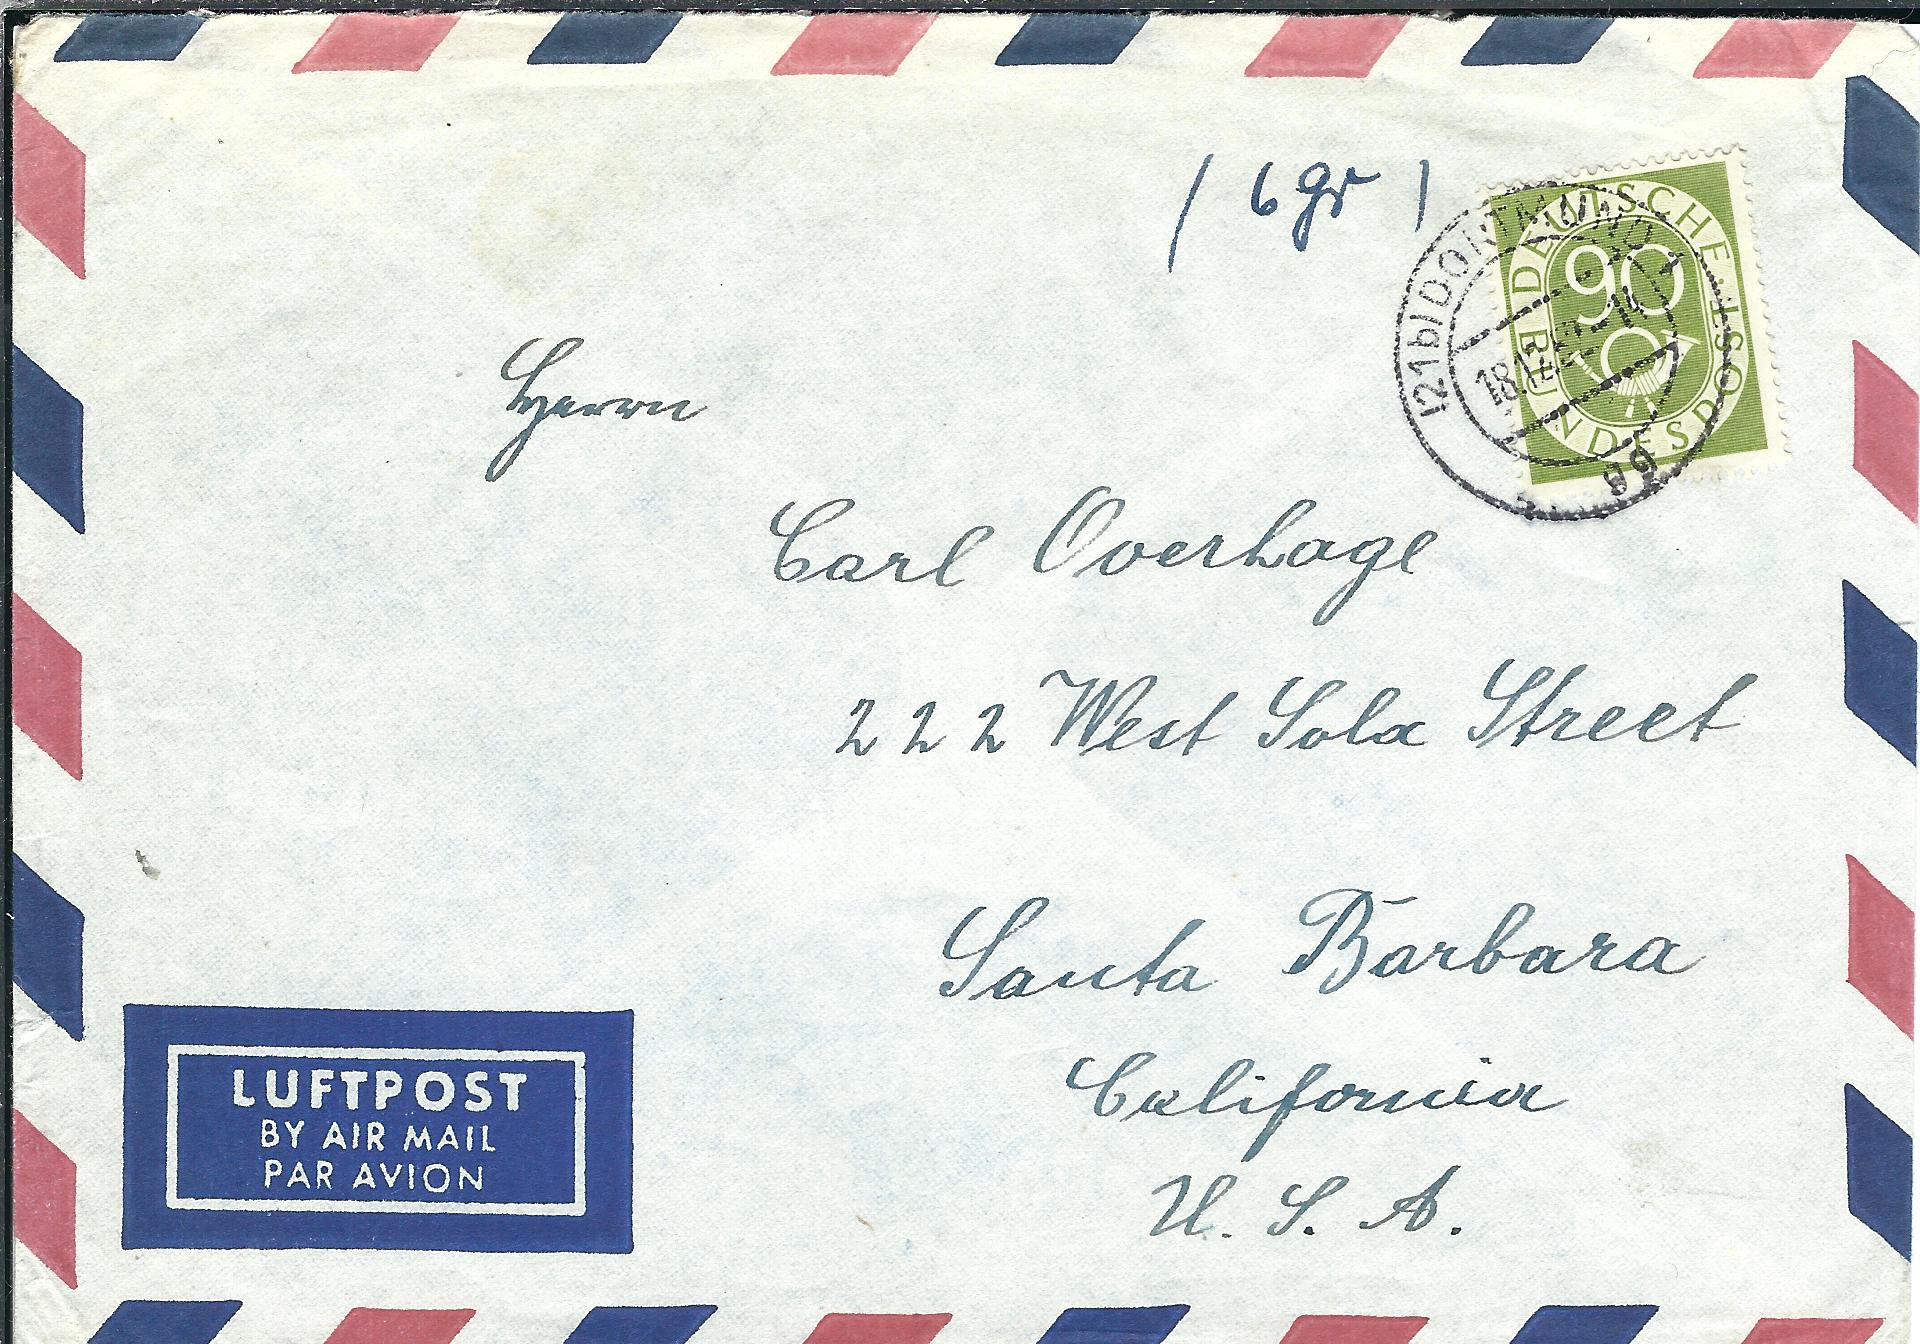 / 6 gr /
DEUTSCHE BUNDESPOST
90
(21b) DORTMUND 1
18.12.
gg
Herrn
Carl Overhage
222 West Sola Street
Santa Barbara
California
U. S. A.
LUFTPOST
BY AIR MAIL
PAR AVION